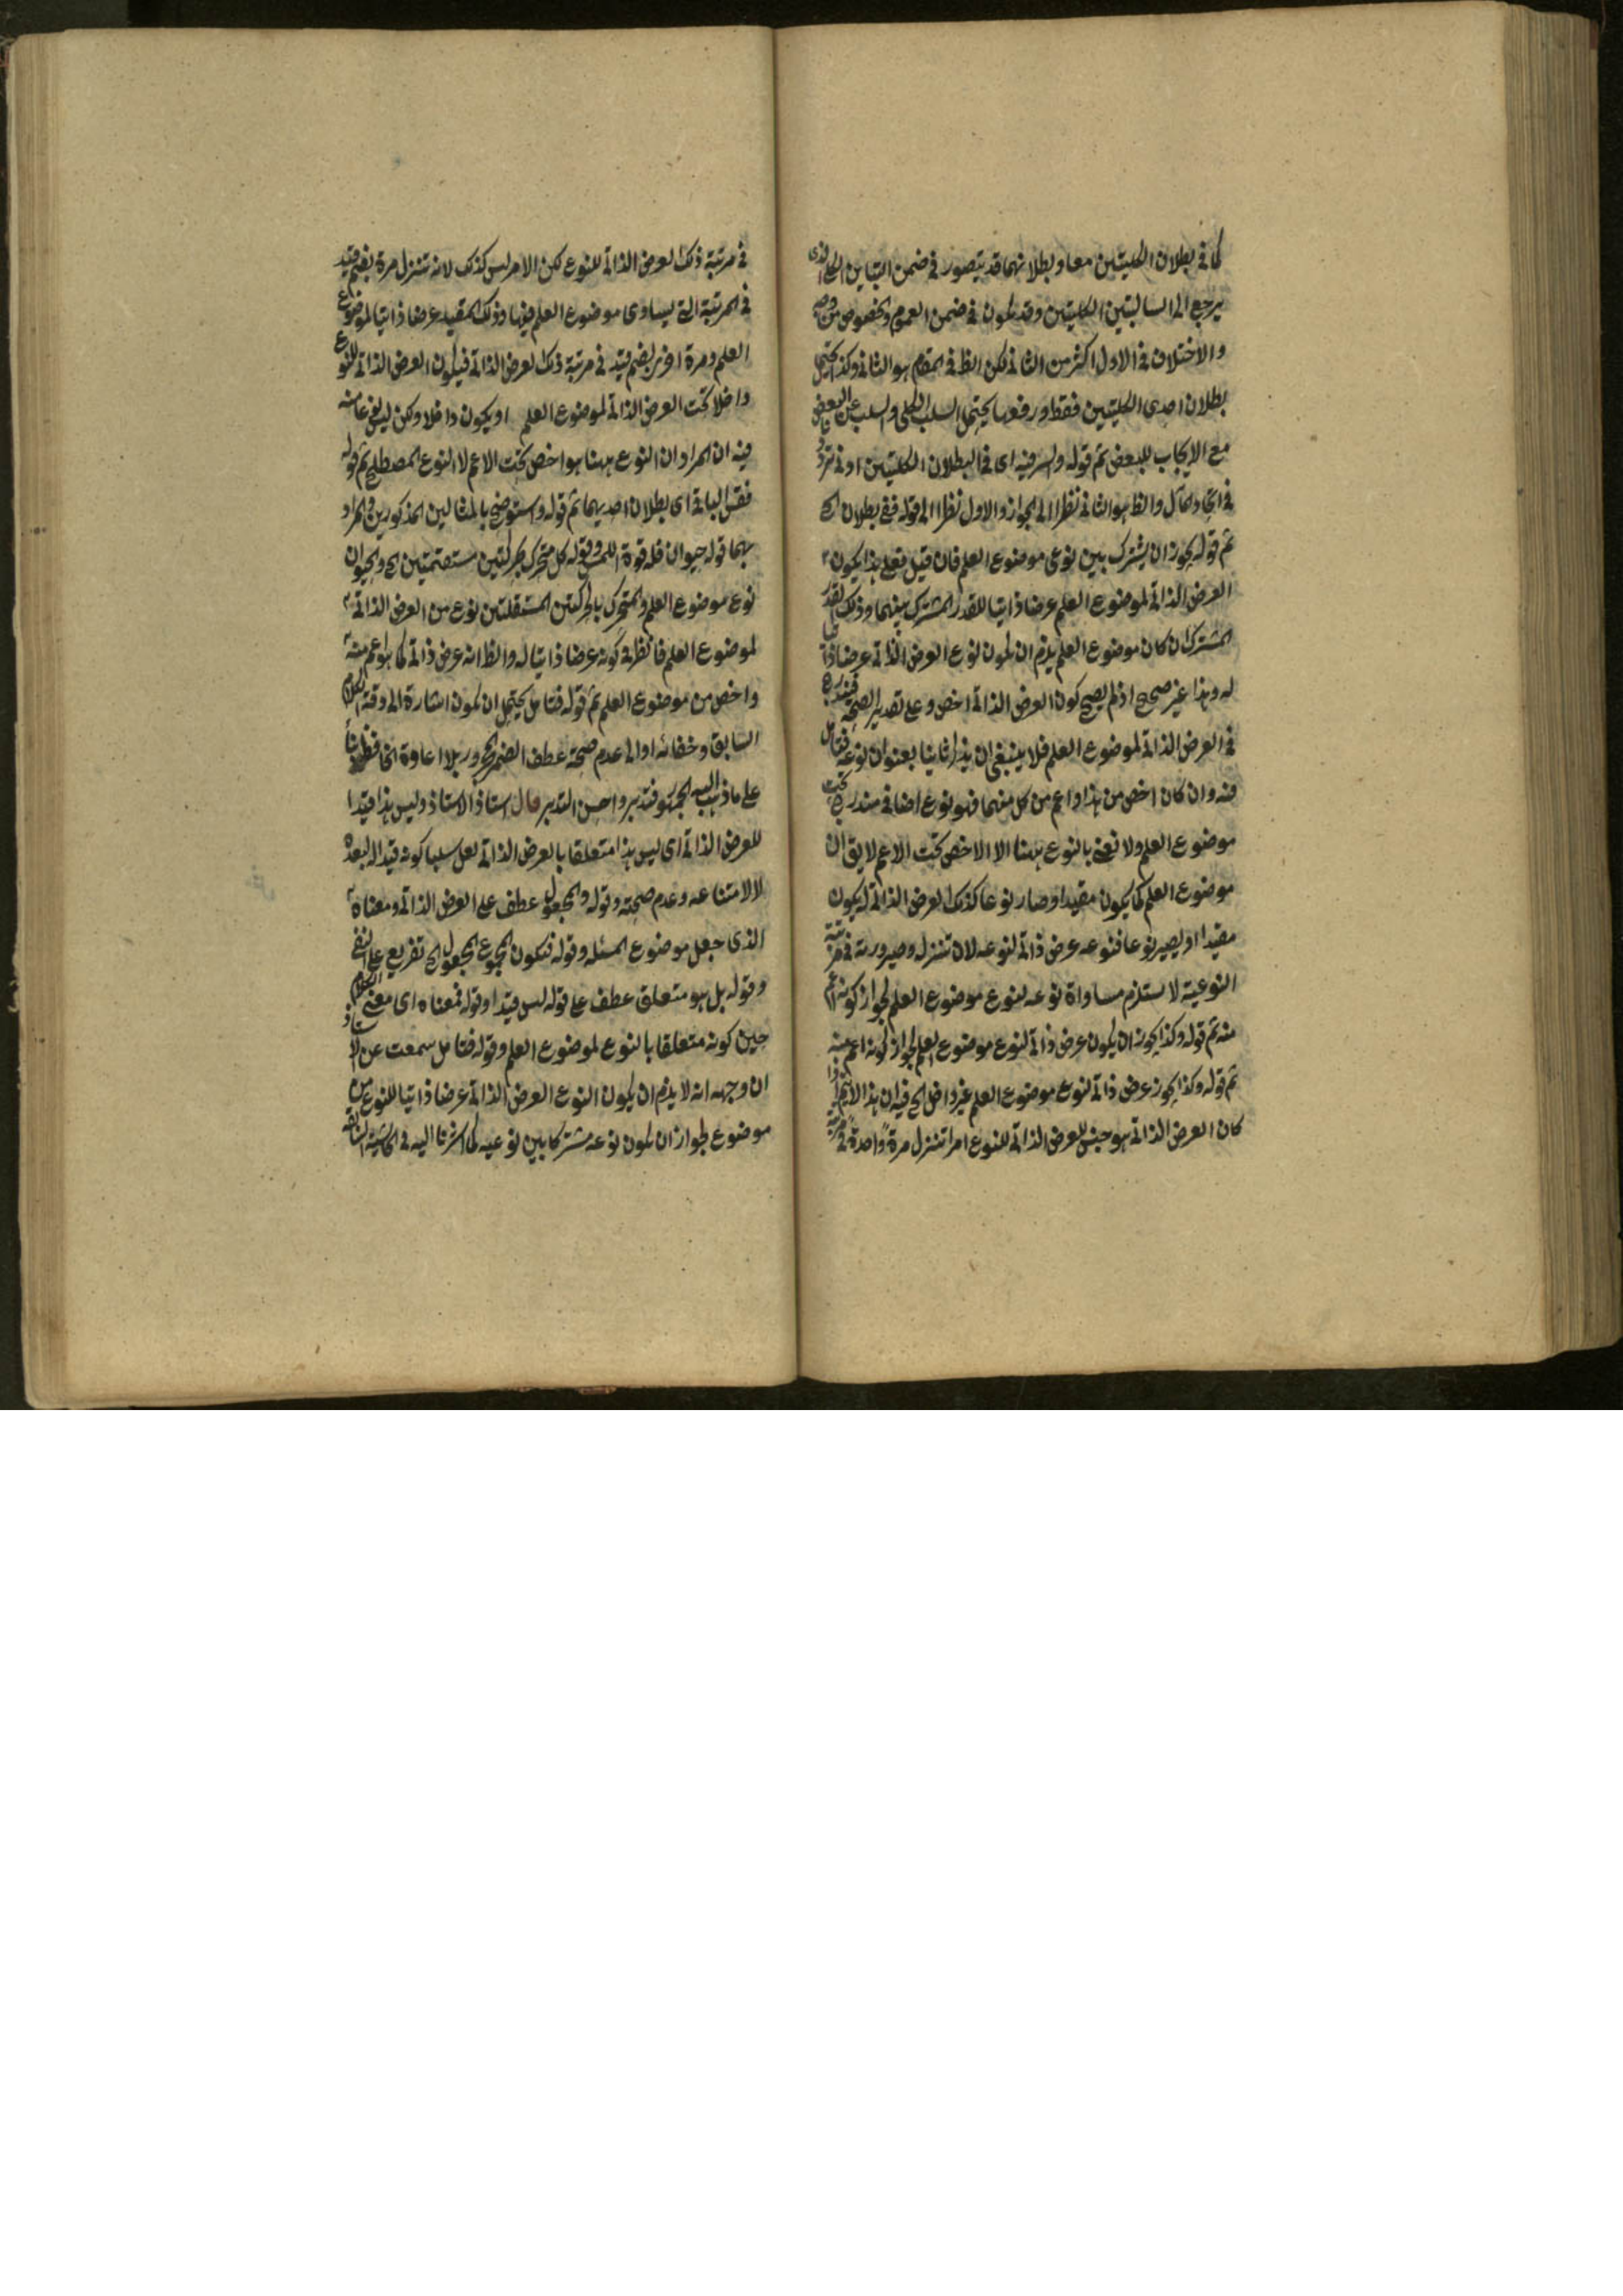 كما فى بطلان الكليتين معا وبطلانهما قد يتصور فى ضمن التباين الكلى الذى
يرجع الى السالبتين الكليتين وقد يكون فى ضمن العموم والخصوص من وجه
والاختلاف فى الاول اكثر من الثانى لكن الظ فى المقام هو الثانى وكذا يحتمل
بطلان احدى الكليتين فقط ورفعها يحتمل السلب الكلى والسلب عن البعض
مع الايجاب للبعض ثم قوله والسر فيه اى فى البطلان الكليتين او فى
فى اتحاد المآل والظ هو الثانى نظرا الى الجواز والاول نظرا الى قوله ففى بطلان الخ
ثم قوله يجوز ان يشترك بين نوعى موضوع العلم فان قيل فعلى هذا يكون
العرض الذاتى لموضوع العلم عرضا ذاتيا للقدر المشترك بينهما وذلك القدر
المشترك ان كان موضوع العلم يلزم ان يكون نوع العرض الذاتى عرضا ذاتيا
له وهذا غير صحيح اذ لم يصح كون العرض الذاتى اخص وعلى تقدير الصحة فيندرج
فى العرض الذاتى لموضوع العلم فلا ينبغى ان يذكر ثانيا بعنوان نوعه فتأمل
فنه وان كان اخص من هذا واعم من كل منهما فهو نوع اضافى مندرج تحت
موضوع العلم ولا نعنى بالنوع ههنا الا الاخص تحت الاعم لا يق ان
موضوع العلم كما يكون مقيدا وصار نوعا كذلك العرض الذاتى له يكون
مقيدا او يصير نوعا فنوعه عرض ذاتى لنوعه لان تنزله وصيرورته فى مرتبة
النوعية لا يستلزم مساواة نوعه لنوع موضوع العلم لجواز كونه اعم
منه ثم قوله وكذا يجوز ان يكون عرض ذاتى لنوع موضوع العلم لجواز كونه اعم منه
ثم قوله وكذا يجوز عرض ذاتى لنوع موضوع العلم غير داخل الخ فيه ان هذا لا يتم اذا
كان العرض الذاتى هو جنس للعرض الذاتى للنوع امرا تنزل مرة واحدة فى مرتبة
فى مرتبة ذلك العرض الذاتى للنوع لكن الامر ليس كذلك لانه تنزل مرة بضم قيد
فى المرتبة التى يساوى موضوع العلم فيها وذلك المقيد عرضا ذاتيا لموضوع
العلم ومرة اخرى بضم قيد فى مرتبة ذلك العرض الذاتى فيكون العرض الذاتى للنوع
داخلا تحت العرض الذاتى لموضوع العلم او يكون داخلا ولكن ليس نوعا منه
فيه ان المراد ان النوع ههنا هو اخص تحت الاعم لا النوع المصطلح ثم قوله
فقس الباقى اى بطلان احديهما ثم قوله واستوضح بالمثالين المذكورين المراد
بهما قوله حيوان فله قوة اللمس وقوله كل متحرك بحركتين مستقيمتين الخ والحيوان
نوع موضوع العلم والمتحرك بالحركتين المستقلتين نوع من العرض الذاتى
لموضوع العلم فانظر فى كونه عرضا ذاتيا له والظ انه عرض ذاتى كما هو اعم منه
واخص من موضوع العلم ثم قوله فتأمل يحتمل ان يكون اشارة الى دقة الكلام
السابق وخفائه او الى عدم صحة عطف الضمير المجرور بلا اعادة الخافض
على ما ذهب اليه الجمهور فتدبر واحسن التدبر قال استاذ الاستاذ وليس هذا قيدا
للعرض الذاتى اى ليس هذا متعلقا بالعرض الذاتى لعل سلبا كونه قيدا له لبعده
لا لامتناعه وعدم صحته وقوله والمجعول عطف على العرض الذاتى ومعناه
الذى جعل موضوع المسئلة وقوله فيكون المجموع المجعول الخ تفريع على النفى
وقوله بل هو متعلق عطف على قوله ليس قيدا وقوله فمعناه اى معنى الكلام
حين كونه متعلقا بالنوع لموضوع العلم وقوله فتأمل سمعت عن الاستاذ
ان وجهه انه لا يلزم ان يكون النوع العرض الذاتى عرضا ذاتيا للنوع من
موضوع لجواز ان يكون نوعه مشتركا بين نوعيه كما اشرنا اليه فى الحاشية السابقة